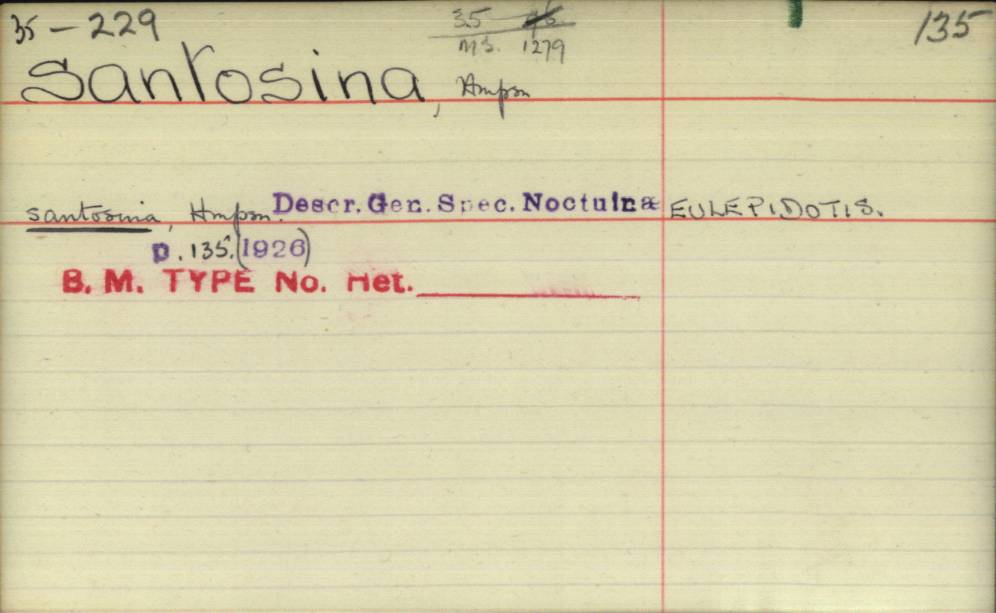 35 - 229
35
135
M.S. 1279
Santosina, Hmpsn
santosina, Hmpsn. Descr. Gen. Spec. Noctuinæ EULEPIDOTIS.
p. 135. (1926)
B. M. TYPE No. Het.